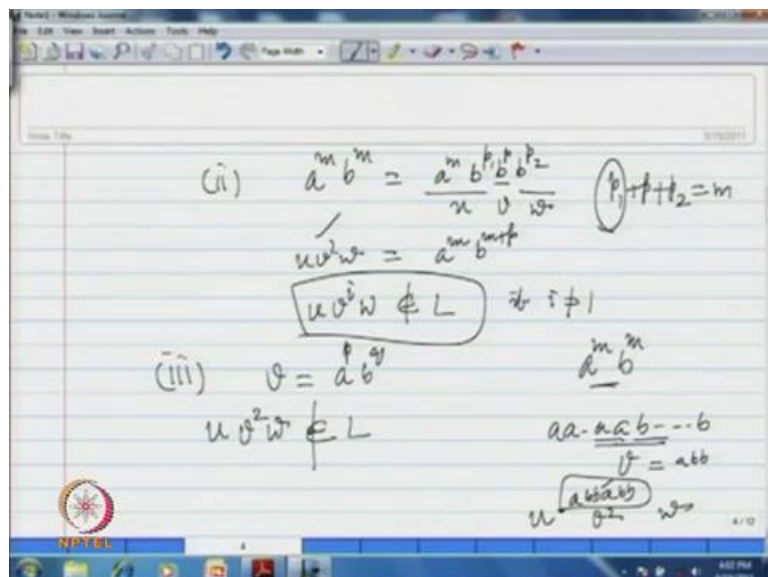 Note1 - Windows Journal
File Edit View Insert Actions Tools Help
Page Width
Note Title
9/15/2011
(ii) a^m b^m = a^m b^{p_1} b^p b^{p_2} p_1+p+p_2 = m
u v w
uv^2w = a^m b^{m+p}
uv^iw ∉ L if i ≠ 1
(iii) v = a^p b^q a^m b^m
uv^2w ∉ L aa- aab---b
v = abb
u abbabb w
v^2
4/12
NPTEL
4
4:02 PM